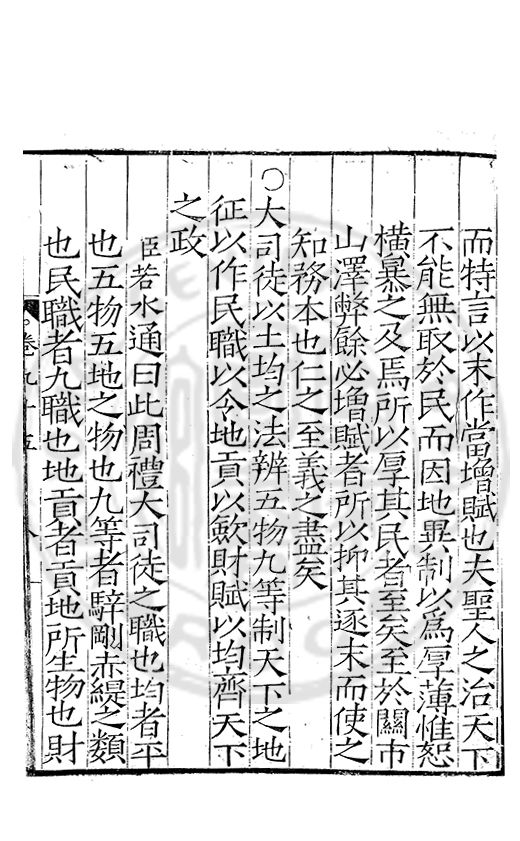 而特言以末作當增賦也夫聖人之治天下
不能無取於民而因地異制以爲厚薄惟恕
橫暴之及焉所以厚其民者至矣至於關市
山澤弊餘必增賦者所以抑其逐末而使之
知務本也仁之至義之盡矣
○大司徒以土均之法辨五物九等制天下之地
征以作民職以令地貢以斂財賦以均齊天下
之政
臣若水通曰此周禮大司徒之職也均者平
也五物五地之物也九等者騂剛赤緹之類
也民職者九職也地貢者貢地所生物也財
卷九十五